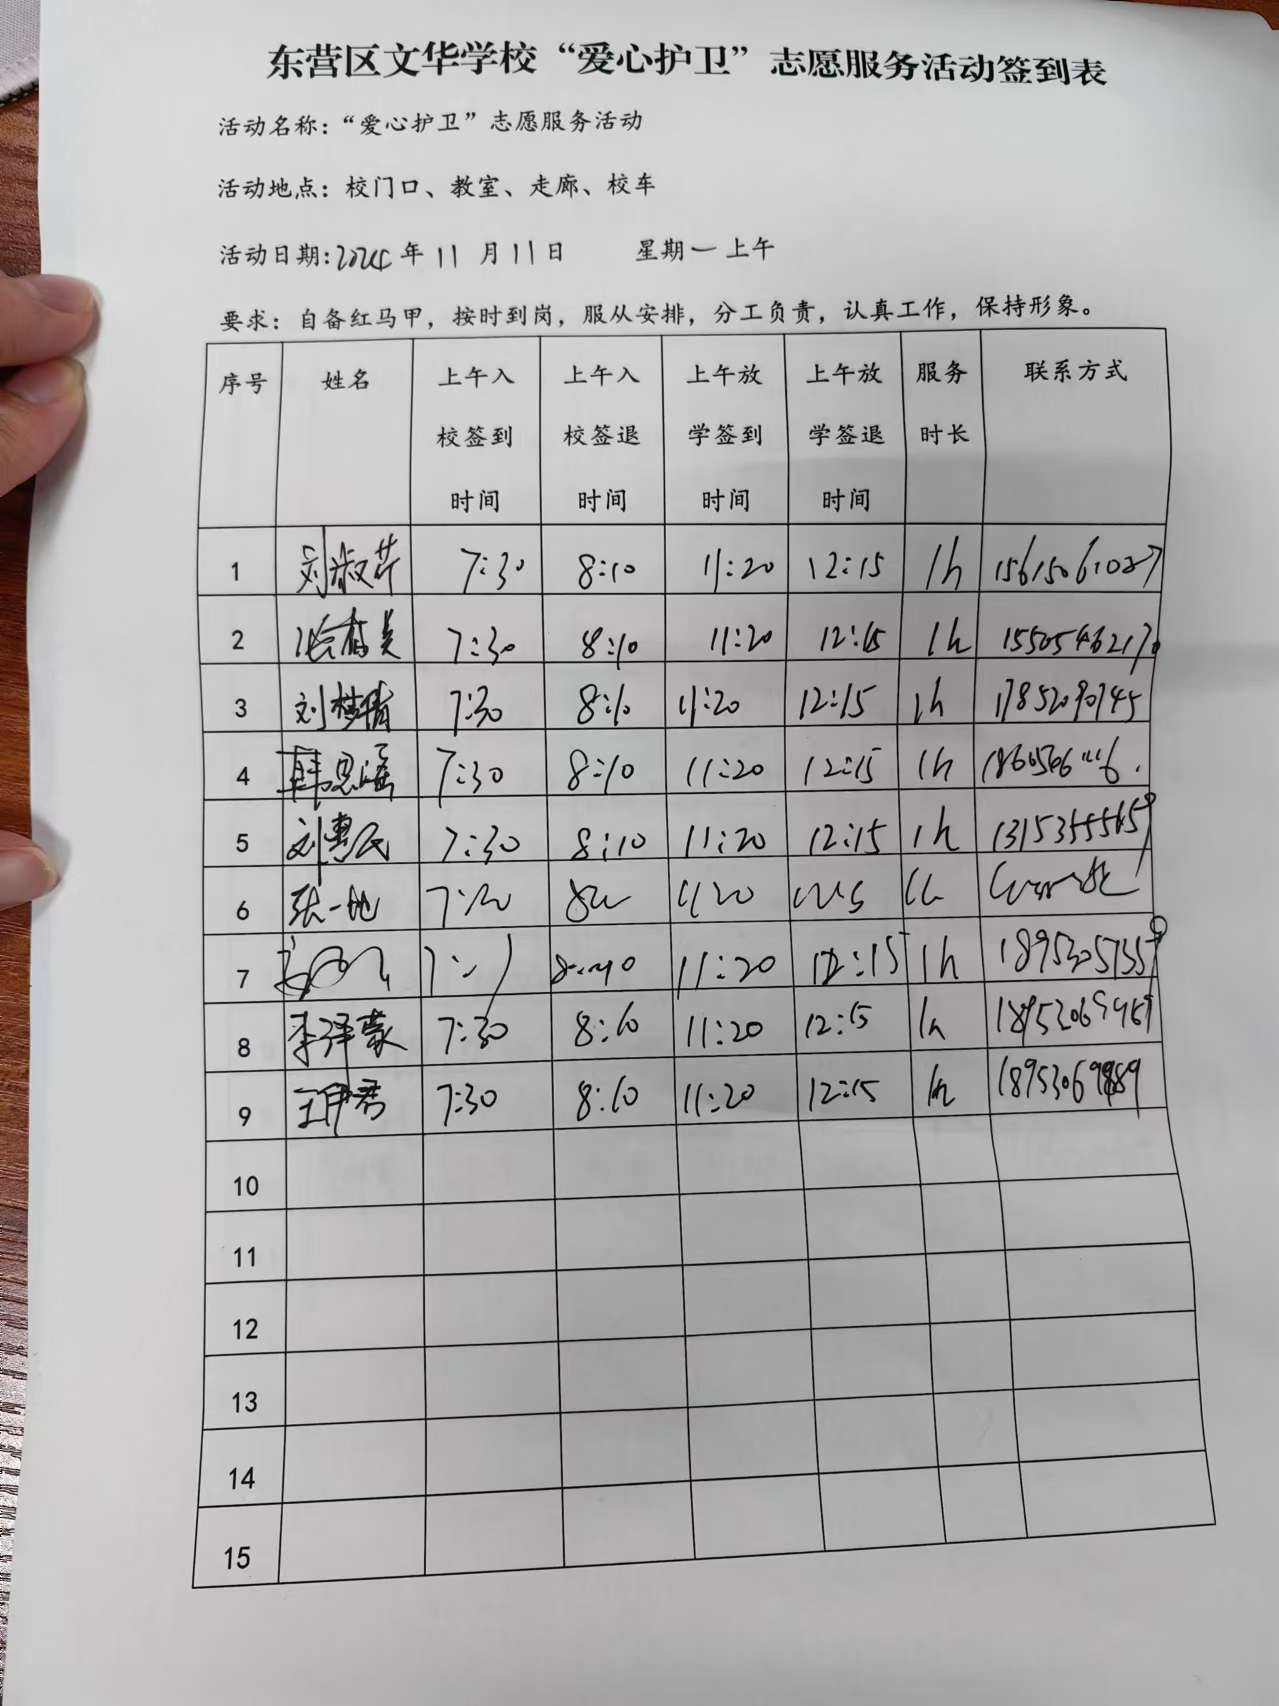 东营区文华学校“爱心护卫”志愿服务活动签到表
活动名称：“爱心护卫”志愿服务活动
活动地点：校门口、教室、走廊、校车
活动日期：2024年11月11日 星期一上午
要求：自备红马甲，按时到岗，服从安排，分工负责，认真工作，保持形象。
序号 姓名 上午入校签到时间 上午入校签退时间 上午放学签到时间 上午放学签退时间 服务时长 联系方式
1 刘淑芹 7:30 8:10 11:20 12:15 1h 15615061027
2 7:30 8:10 11:20 12:15 1h
3 刘梦倩 7:30 8:10 11:20 12:15 1h
4 韩思瑶 7:30 8:10 11:20 12:15 1h
5 刘惠民 7:30 8:10 11:20 12:15 1h
6 张一地 11:20
7 11:20 12:15 1h
8 李泽蒙 7:30 8:10 11:20 12:15 1h
9 王伊君 7:30 8:10 11:20 12:15 1h
10
11
12
13
14
15